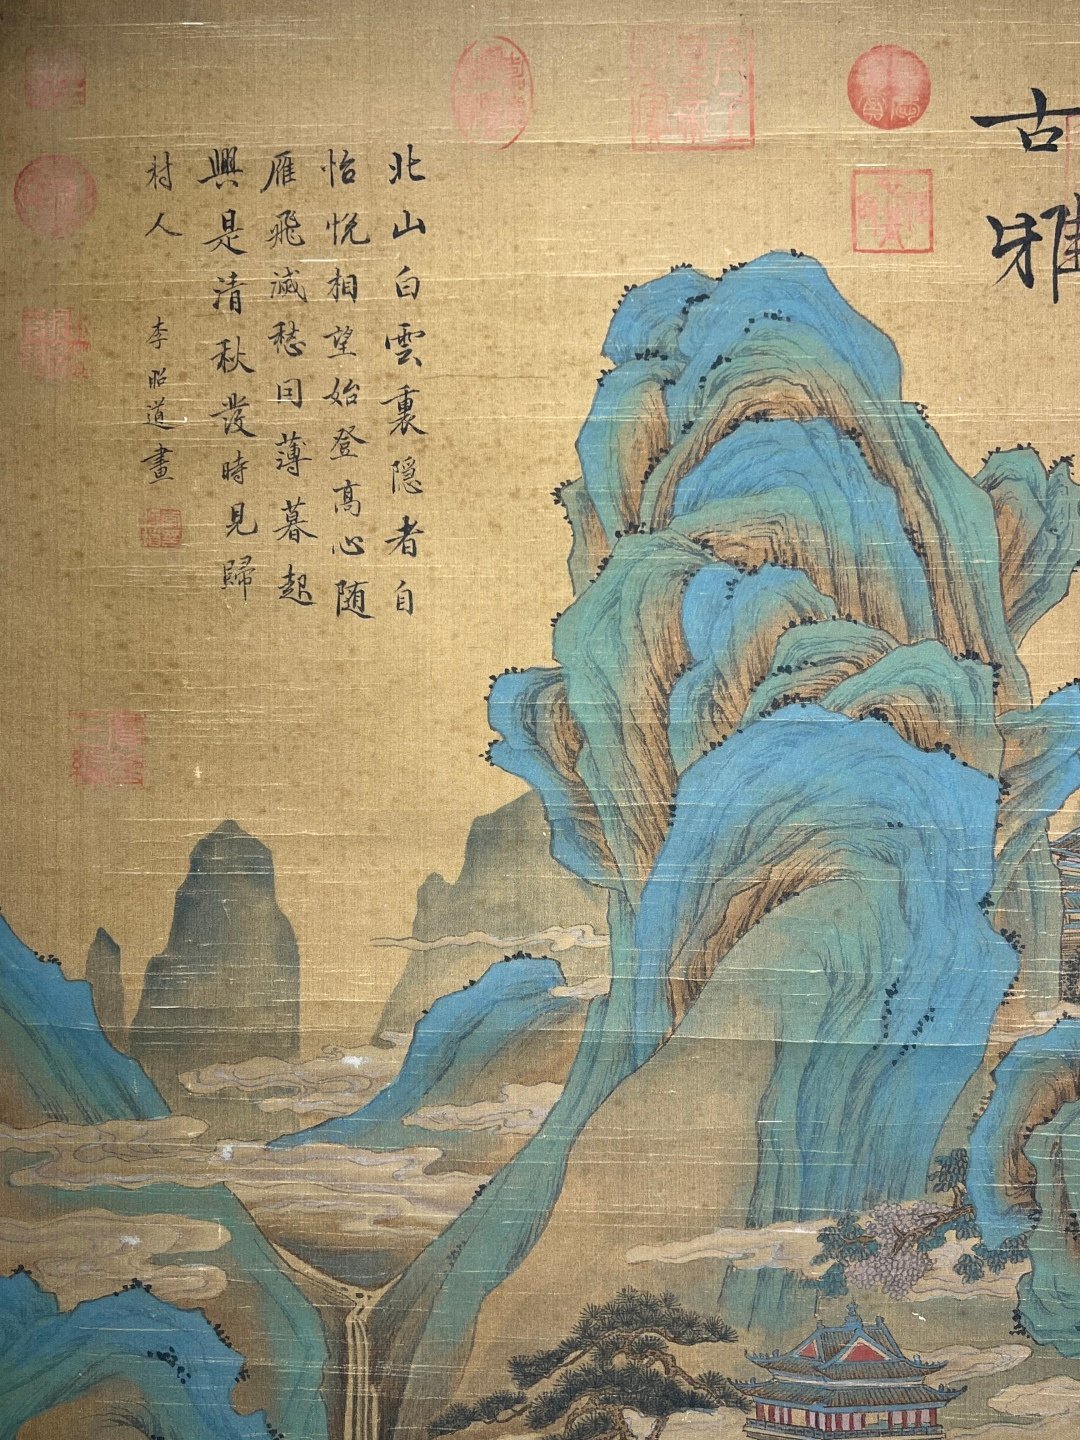 古雅
北山白雲裏隐者自
怡悅相望始登高心随
雁飛滅愁因薄暮起
興是清秋發時見歸
村人 李昭道畫